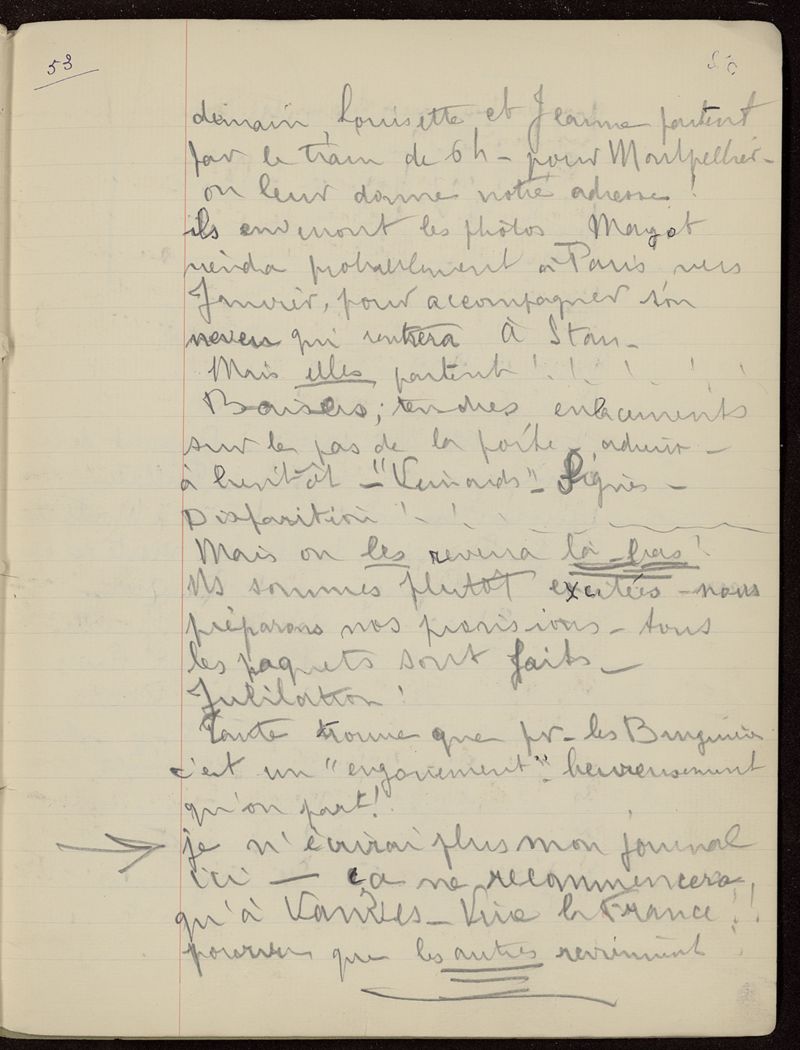 53
demain, Louisette et Jeanne partent
par le train de 6h - pour Montpellier -
on leur donne notre adresse !
ils enverront les photos Magot
viendra probablement à Paris vers
Janvier, pour accompagner son
neveu qui rentrera À Stan -
Mais elles partent ! ! ! ! ! !
Baisers ; tendres enlacements
sur le pas de la porte - adieu -
à bientôt - "Veinards" - Signes -
Disparition ! - ! -
Mais on les reverra là-bas !
Ns sommes plutôt excitées - nous
préparons nos provisions - tous
les paquets sont faits -
Jubilation !
Tante trouve que pr - les
c'est un "engouement" - heureusement
qu'on part !
je n'écrirai plus mon journal
ici - ça ne recommencera,
qu'à - Vive la France ! !
pourvu que les autres reviennent !